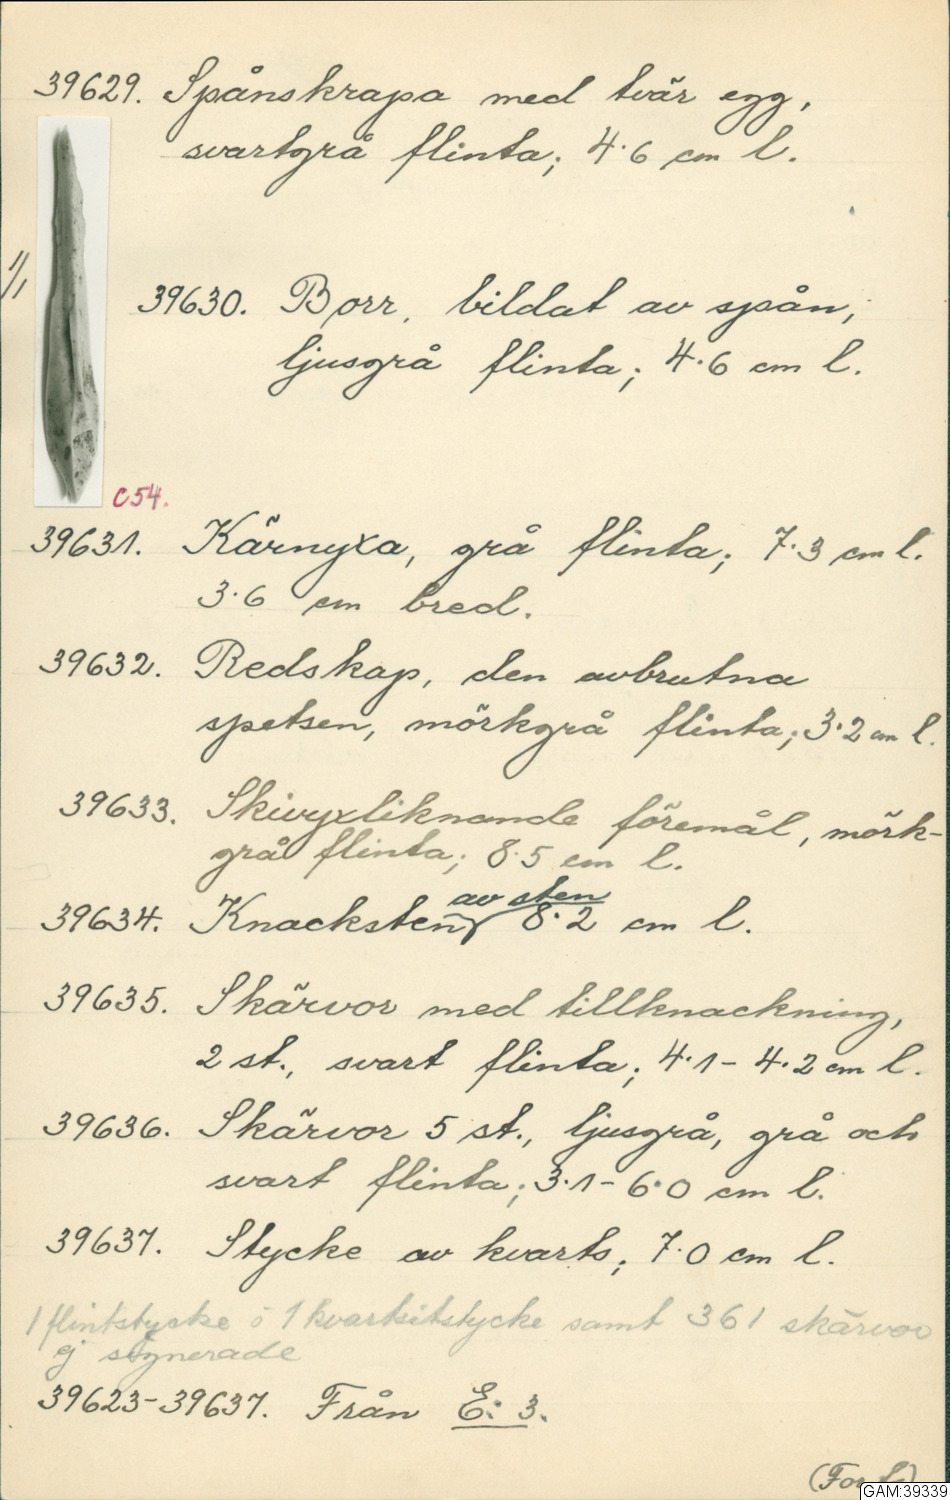 39629. Spånskrapa med tvär egg,
svartgrå flinta; 4.6 cm l.
1/1
39630. Borr, bildat av spån,
ljusgrå flinta; 4.6 cm l.
C54.
39631. Kärnyxa, grå flinta; 7.3 cm l.
3.6 cm bred.
39632. Redskap, den avbrutna
spetsen, mörkgrå flinta; 3.2 cm l.
39633. Skivyxliknande föremål, mörk-
grå flinta; 8.5 cm l.
av sten
39634. Knacksten 8.2 cm l.
39635. Skärvor med tillknackning,
2 st., svart flinta; 4.1-4.2 cm l.
39636. Skärvor 5 st., ljusgrå, grå och
svart flinta; 3.1-6.0 cm l.
39637. Stycke av kvarts; 7.0 cm l.
1 flintstycke o 1 kvartsitstycke samt 361 skärvor
ej signerade
39623-39637. Från E: 3.
GAM:39339